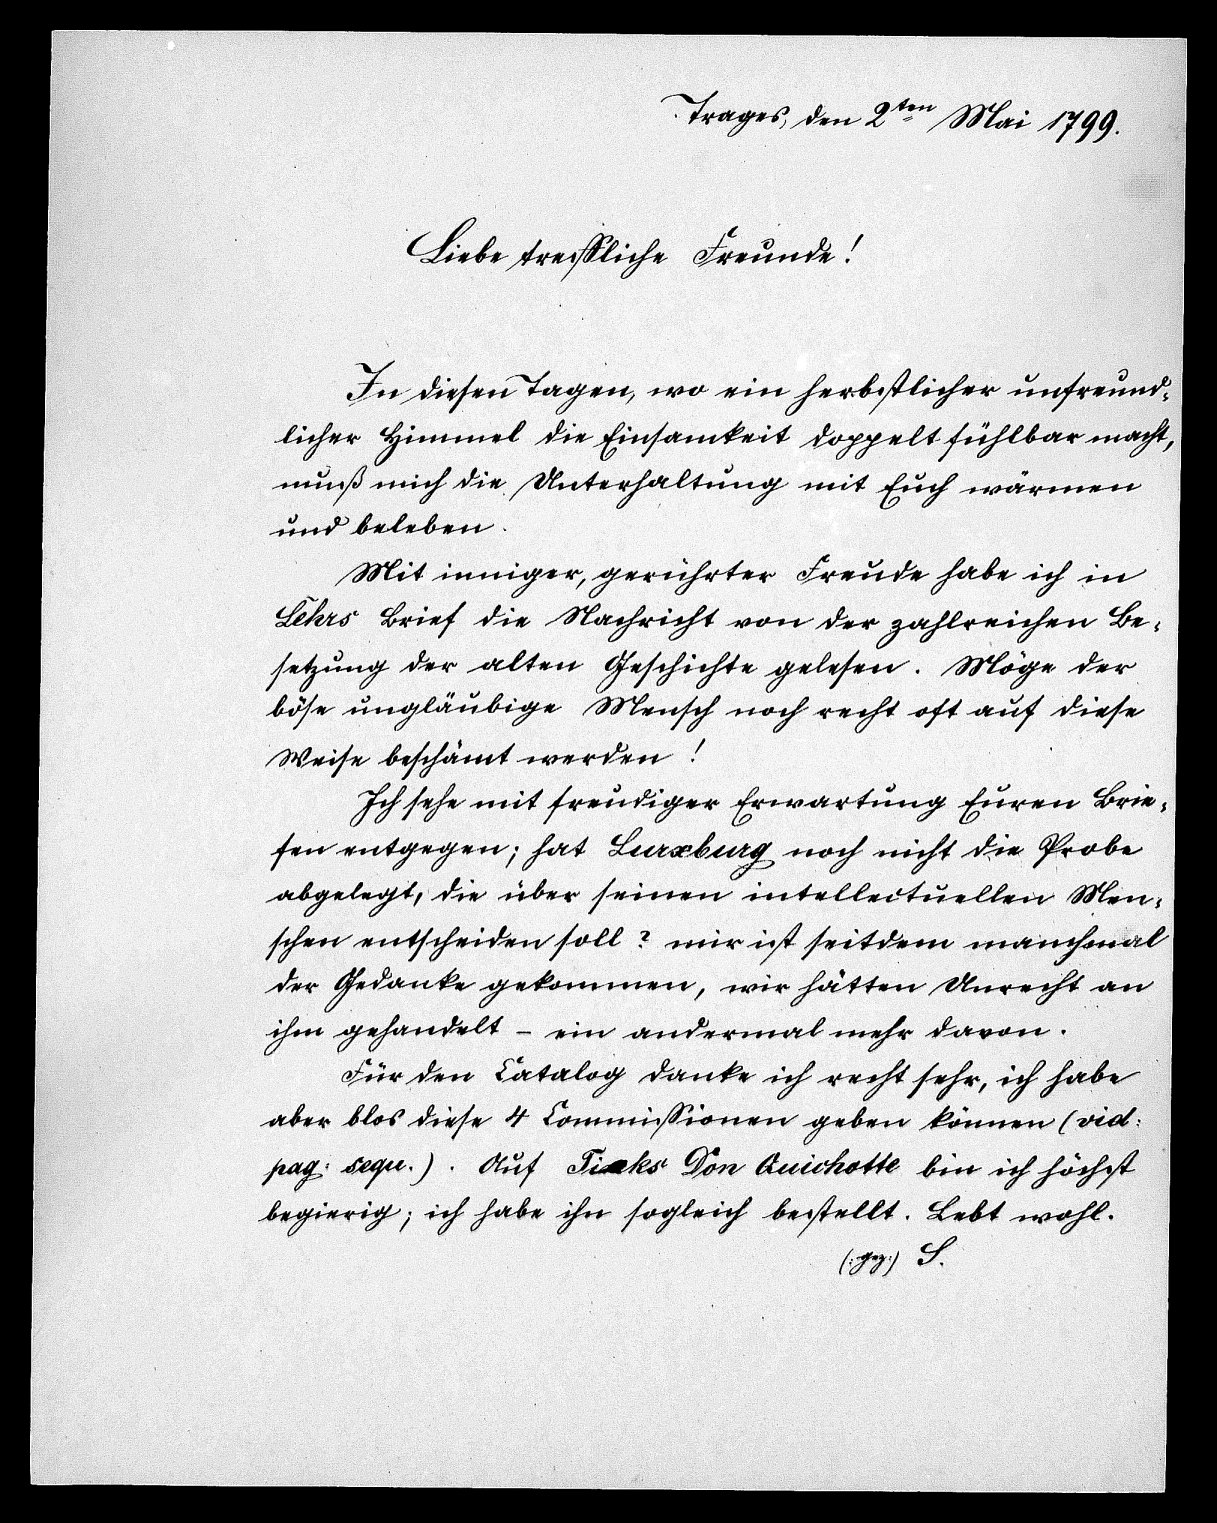 Trages, den 2ten Mai 1799.
Liebe treffliche Freunde!
In diesen Tagen, wo ein herbstlicher unfreund-
licher Himmel die Einsamkeit doppelt fühlbar macht,
muß mich die Unterhaltung mit Euch wärmen
und beleben.
Mit inniger, gerührter Freude habe ich in
Lehrs Brief die Nachricht von der zahlreichen Be-
setzung der alten Geschichte gelesen. Möge der
böse ungläubige Mensch noch recht oft auf diese
Weise beschämt werden!
Ich sehe mit freudiger Erwartung Euren Brie-
fen entgegen; hat Luxburg noch nicht die Probe
abgelegt, die über seinen intellectuellen Men-
schen entscheiden soll? mir ist seitdem manchmal
der Gedanke gekommen, wir hätten Unrecht an
ihm gehandelt – ein andermal mehr davon.
Für den Catalog danke ich recht sehr, ich habe
aber blos diese 4 Commissionen geben können (vid:
pag: sequ.). Auf Tieks Don Quichotte bin ich höchst
begierig; ich habe ihn sogleich bestellt. Lebt wohl.
(: gez:) S.